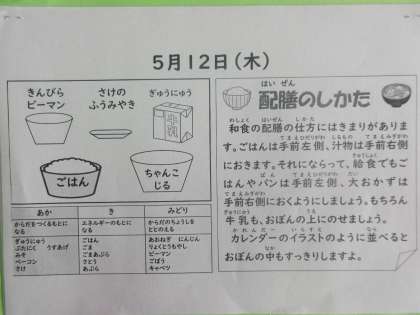 5月12日(木)
きんぴら
ピーマン
さけの
ふうみやき
ぎゅうにゅう
牛乳
ごはん
ちゃんこ
じる
あか
き
みどり
からだをつくるもとに
なる
エネルギーのもとに
なる
からだのちょうしを
ととのえる
ぎゅうにゅう
ぶたにく うすあげ
みそ
ベーコン
さけ
ごはん
ごま
ごまあぶら
さとう
あぶら
あおねぎ にんじん
りょくとうもやし
ピーマン
ごぼう
キャベツ
はい ぜん
配膳のしかた
わしょく はいぜん しかた
和食の配膳の仕方にはきまりがありま
てまえひだりがわ しるもの てまえみぎがわ
す。ごはんは手前左側、汁物は手前右側
きゅうしょく
におきます。それにならって、給食でもご
てまえひだりがわ だい
はんやパンは手前左側、大おかずは
てまえみぎがわ
手前右側におくようにしましょう。もちろん
ぎゅうにゅう うえ
牛乳も、おぼんの上にのせましょう。
かれんだー いらすと なら
カレンダーのイラストのように並べると
なか
おぼんの中もすっきりしますよ。